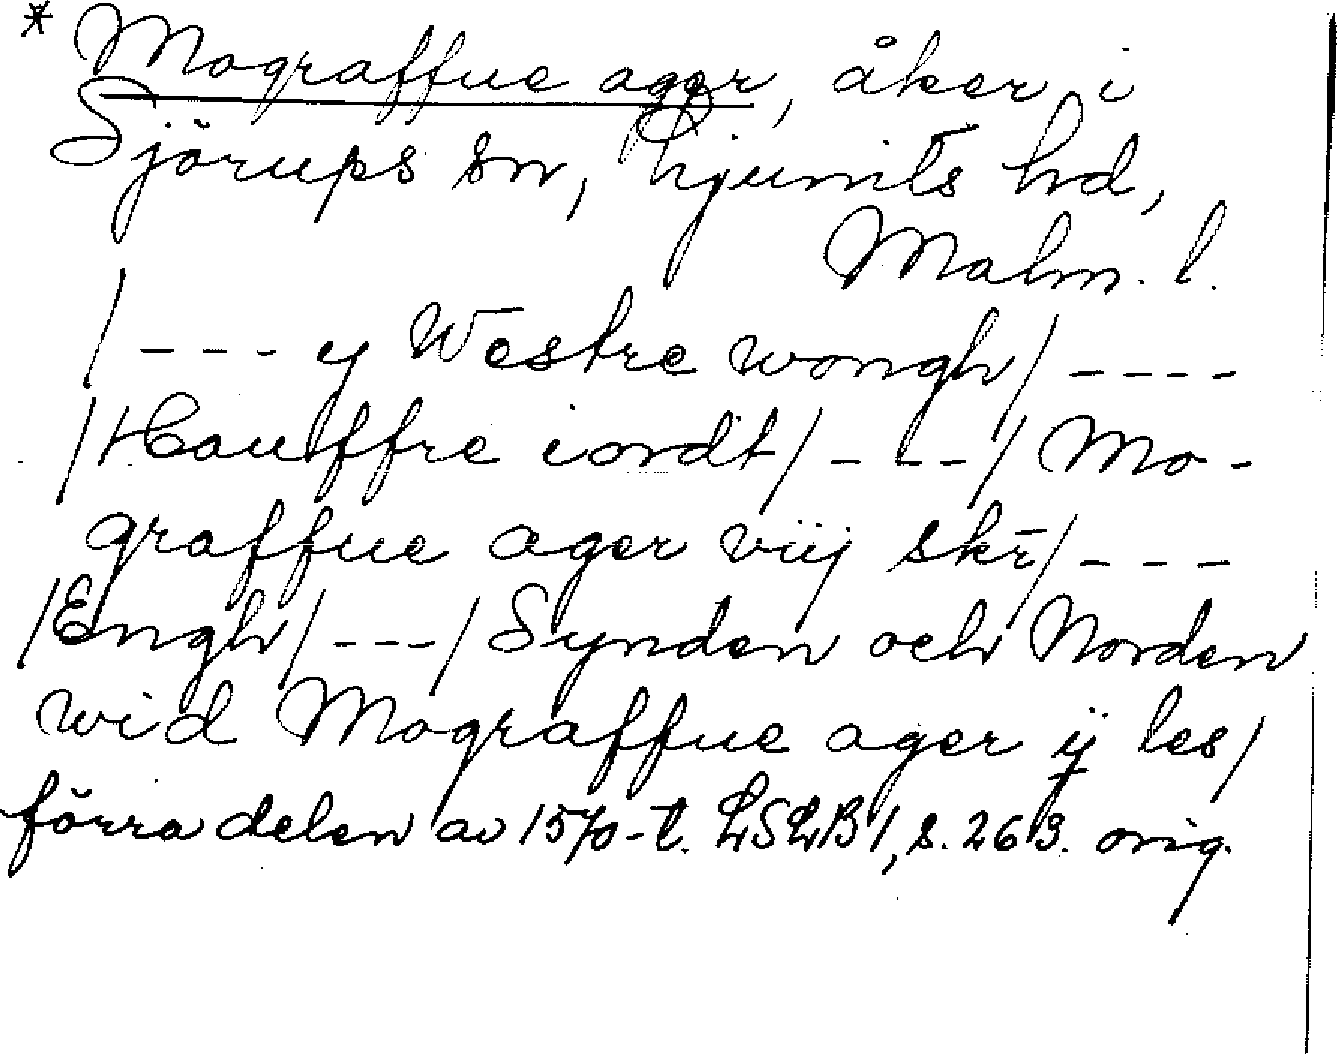 * Mograffue ager, åker i
Sjörups sn, Ljunits hd,
Malm. l.
/ - - - y Westre wongh / - - - -
/ Hauffre iordt / - - - / Mo-
graffue ager viij skr̄ / - - -
/ Engh / - - - / Synden och Norden
wid Mograffue ager ij les /
förra delen av 1570-t. LSLB 1, s. 263. orig.